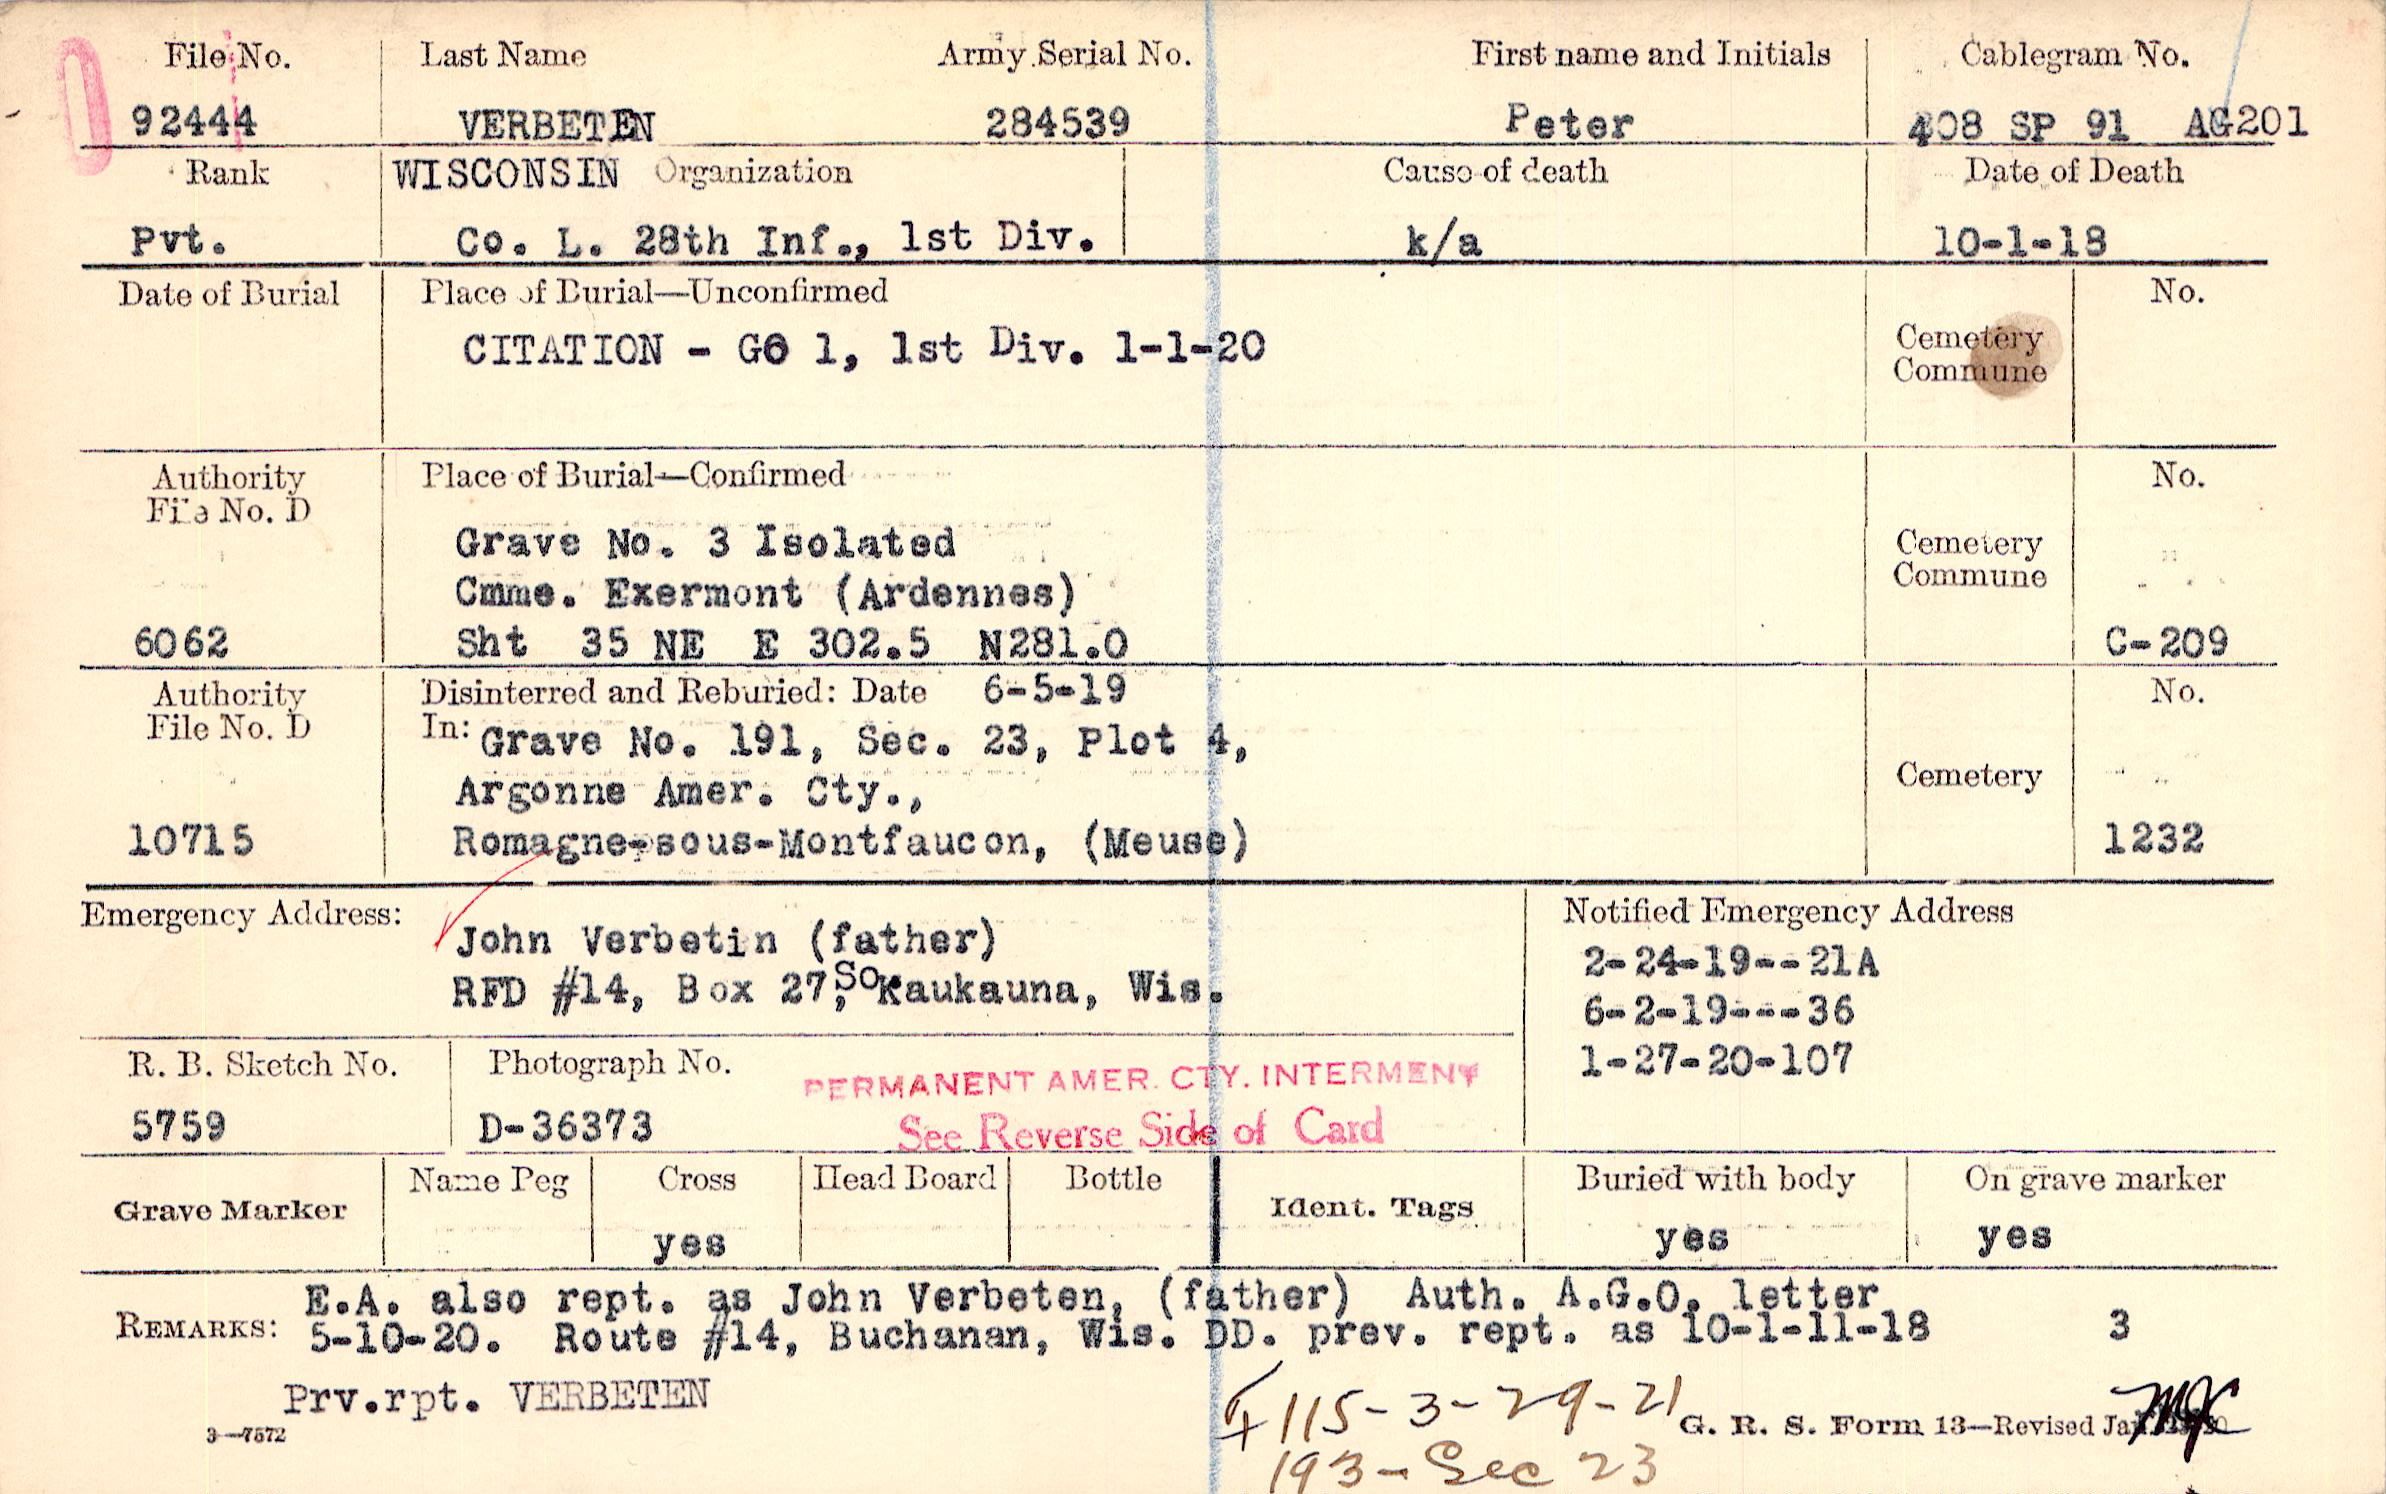 File No. Last Name Army Serial No. First name and Initials Cablegram No.
92444 VERBETEN 284539 Peter 408 SP 91 AG201
Rank WISCONSIN Organization Cause of death Date of Death
Pvt. Co. L. 28th Inf., 1st Div. k/a 10-1-18
Date of Burial Place of Burial—Unconfirmed No.
CITATION - GO 1, 1st Div. 1-1-20
Cemetery
Commune
Authority Place of Burial—Confirmed No.
File No. D
Grave No. 3 Isolated
Cemetery
Commune
Cmme. Exermont (Ardennes)
6062 Sht 35 NE E 302.5 N281.0 C-209
Authority Disinterred and Reburied: Date 6-5-19 No.
File No. D In: Grave No. 191, Sec. 23, Plot 4,
Argonne Amer. Cty., Cemetery
10715 Romagne-sous-Montfaucon, (Meuse) 1232
Emergency Address: Notified Emergency Address
John Verbetin (father) 2-24-19--21A
RFD #14, Box 27, So Kaukauna, Wis. 6-2-19---36
1-27-20-107
R. B. Sketch No. Photograph No. PERMANENT AMER. CTY. INTERMENT
5759 D-36373 See Reverse Side of Card
Grave Marker Name Peg Cross Head Board Bottle Ident. Tags Buried with body On grave marker
yes yes yes
REMARKS: E.A. also rept. as John Verbeten, (father) Auth. A.G.O. letter
5-10-20. Route #14, Buchanan, Wis. DD. prev. rept. as 10-1-11-18 3
Prv.rpt. VERBETEN
115-3-29-21
3—7572 G. R. S. Form 13—Revised
193-Sec 23